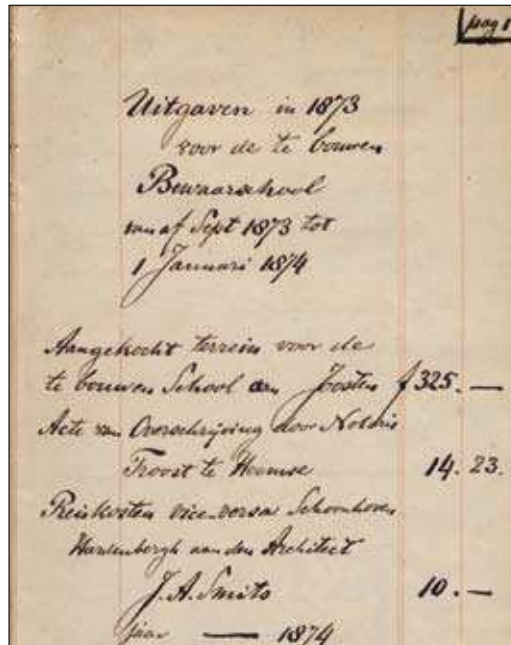 pag 1
Uitgaven in 1873
voor de te bouwen
Bewaarschool
van af Sept 1873 tot
1 Januari 1874
Aangekocht terrein voor de
te bouwen School van Joosten f 325. —
Acte van Overschrijving door Notaris
Troost te Heemse 14. 23.
Reiskosten vice-versa Schoonhoven
Hardenbergh aan den Architect
J. A. Smits 10. —
Jaar — 1874